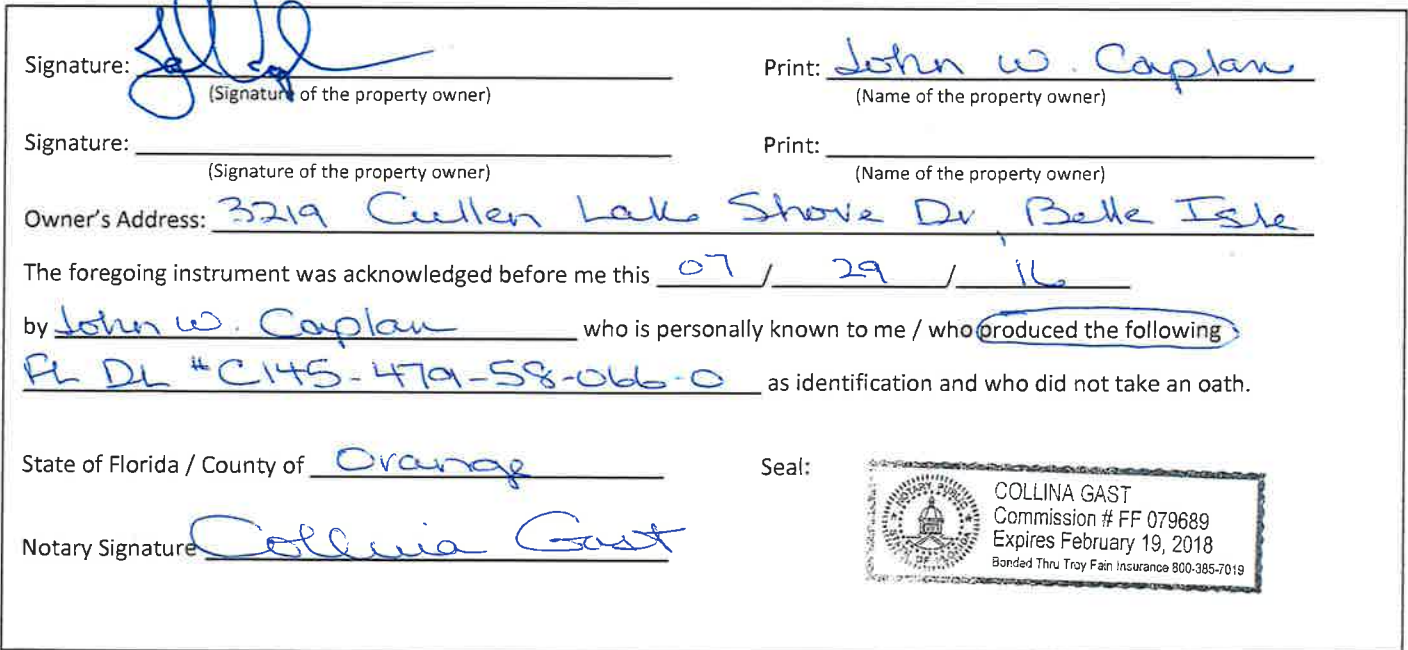 Signature: Print: John W. Caplan
(Signature of the property owner) (Name of the property owner)
Signature: Print:
(Signature of the property owner) (Name of the property owner)
Owner's Address: 3219 Cullen Lake Shore Dr, Belle Isle
The foregoing instrument was acknowledged before me this 07 / 29 / 16
by John W. Caplan who is personally known to me / who produced the following
FL DL #C145-479-58-066-0 as identification and who did not take an oath.
State of Florida / County of Orange Seal:
NOTARY PUBLIC
COLLINA GAST
Commission # FF 079689
Expires February 19, 2018
Bonded Thru Troy Fain Insurance 800-385-7019
Notary Signature Collina Gast